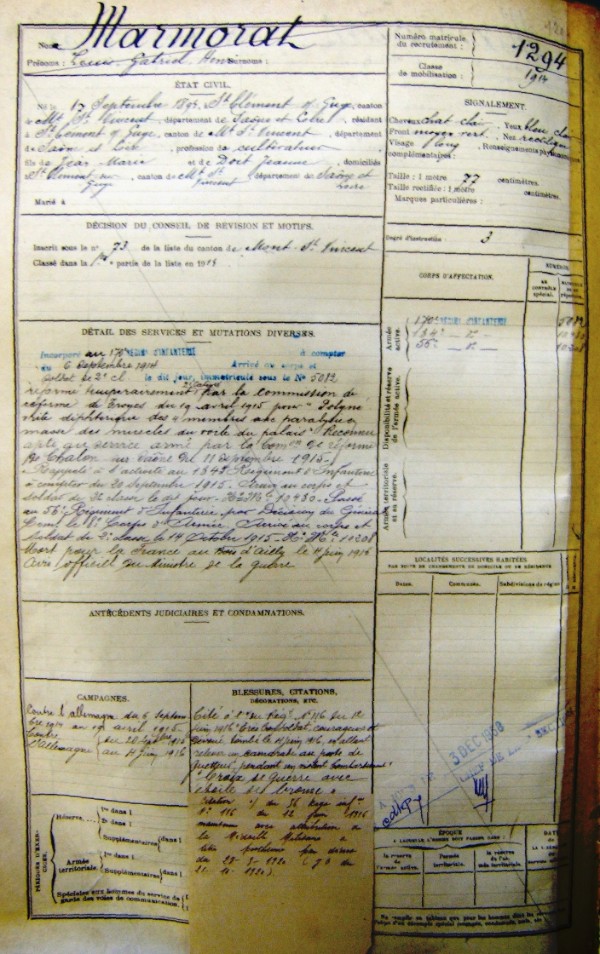 Nom: Marmorat
Prénoms: Louis Gabriel Henri Surnoms:
Numéro matricule
du recrutement: 1294
Classe
de mobilisation: 1914
ÉTAT CIVIL.
Né le 17 Septembre 1895, St Clément s/ Guye, canton
de Mt St Vincent, département de Saône et Loire, résidant
à St Clément s/ Guye, canton de Mt St Vincent, département
de Saône et Loire, profession de cultivateur
fils de Jean Marie et de Dort Jeanne, domiciliés
à St Clément sur Guye, canton de Mt St Vincent, département de Saône et Loire
Marié à
SIGNALEMENT.
Cheveux chat clair Yeux bleu clair
Front moyen vert. Nez rectiligne
Visage long Renseignements physionomiques
complémentaires:
Taille: 1 mètre 77 centimètres.
Taille rectifiée: 1 mètre centimètres.
Marques particulières:
Degré d'instruction: 3
DÉCISION DU CONSEIL DE RÉVISION ET MOTIFS.
Inscrit sous le n° 73 de la liste du canton de Mont St Vincent
Classé dans la 1re partie de la liste en 1914
CORPS D'AFFECTATION.
NUMÉROS
au contrôle spécial.
Armée active.
170e RÉGIMENT D'INFANTERIE 5082
134e — d° — 10430
56e — d° — 10208
Disponibilité et réserve de l'armée active.
Armée territoriale et sa réserve.
DÉTAIL DES SERVICES ET MUTATIONS DIVERSES.
Incorporé au 170e RÉGIMENT D'INFANTERIE à compter
du 6 Septembre 1914 Arrivé au corps et
soldat de 2e cl le dit jour, immatriculé sous le N° 5082
réformé temporairement par la commission de
réforme de Troyes du 19 avril 1915 pour
des 4 membres avec paralysie
des muscles du voile du palais. Reconnu
apte au service armé par la Comon de réforme
de Chalon sur Saône du 11 Septembre 1915.
Rappelé à l'activité au 134e Régiment d'Infanterie
à compter du 20 Septembre 1915. Arrivé au corps et
soldat de 2e classe le dit jour. N° Mle 10430. Passé
au 56e Régiment d'Infanterie par Décision du Général
Comt le 8e Corps d'Armée. Arrivé au corps et
soldat de 2e classe le 14 Octobre 1915. N° Mle 10208
Mort pour la France au Bois d'Ailly le 4 juin 1916
Avis officiel du Ministre de la guerre
ANTÉCÉDENTS JUDICIAIRES ET CONDAMNATIONS.
LOCALITÉS SUCCESSIVES HABITÉES
PAR SUITE DE CHANGEMENTS DE DOMICILE OU DE RÉSIDENCE
Dates. Communes. Subdivisions de région
CAMPAGNES.
Contre l'allemagne du 6 septem
bre 1914 au 19 avril 1915
Contre du 20 septbre 1915
l'allemagne au 4 juin 1916
BLESSURES, CITATIONS,
DÉCORATIONS, ETC.
Cité à l'o. du Régt N° 116 du 12
juin 1916 "Très bon soldat courageux et
dévoué, tombé le 4 juin 1916, en allant
relever un camarade au poste de
guetteur, pendant un violent bombardement"
Croix de Guerre avec
étoile de bronze
citation du 56 Régt inf
n° 116 du 12 juin 1916
attribution de
la Médaille Militaire à
titre posthume par décret
du 28-3-1920
3 DEC 1938
PÉRIODES D'EXERCICES.
Réserve.
1re dans l
2e dans l
Supplémentaires dans l
Armée territoriale.
1re dans l
Supplémentaires dans l
Spéciales aux hommes du service de
garde des voies de communication.
ÉPOQUE
À LAQUELLE L'HOMME DOIT PASSER DANS:
la réserve de l'armée active.
l'armée territoriale.
la réserve de l'armée territoriale.